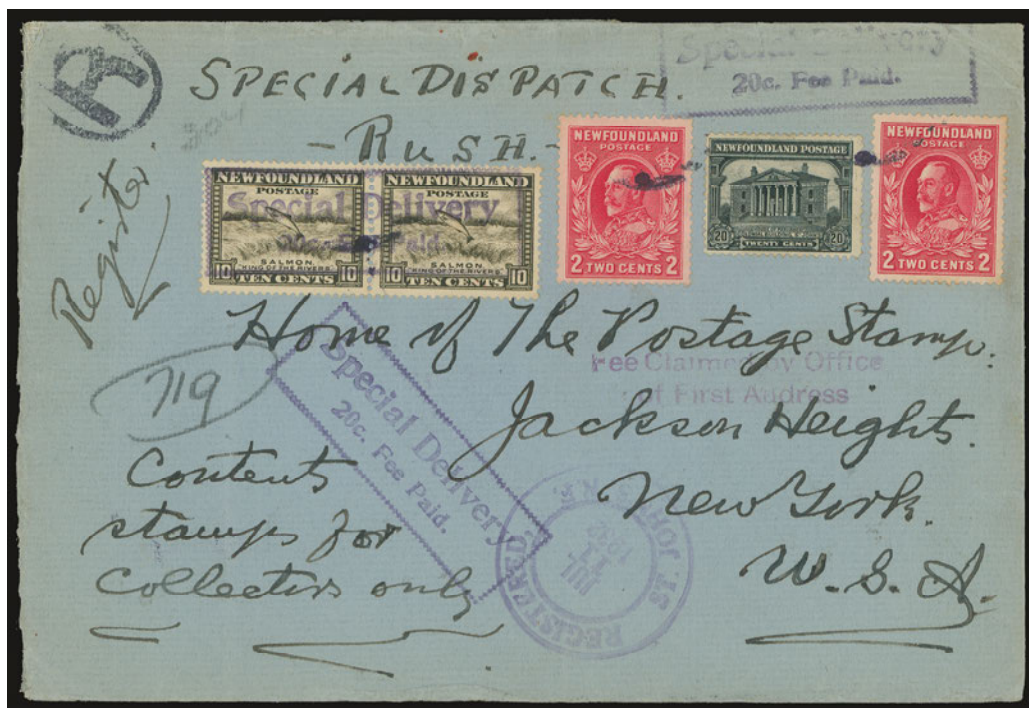 R
Special Delivery
20c. Fee Paid.
SPECIAL DISPATCH.
- RUSH. -
Register.
NEWFOUNDLAND
POSTAGE
SALMON
"KING OF THE RIVERS"
10 TEN CENTS 10
NEWFOUNDLAND
POSTAGE
SALMON
"KING OF THE RIVERS"
10 TEN CENTS 10
Special Delivery
20c. Fee Paid.
NEWFOUNDLAND
POSTAGE
2 TWO CENTS 2
NEWFOUNDLAND POSTAGE
20 20
TWENTY CENTS
NEWFOUNDLAND
POSTAGE
2 TWO CENTS 2
Home of The Postage Stamp.
Fee Claimed by Office
of First Address
Jackson Heights.
New York.
U. S. A.
719
Special Delivery
20c. Fee Paid.
Contents
stamps for
collectors only
REGISTERED,
ST. JOHN'S, N.F.
JUL
1932